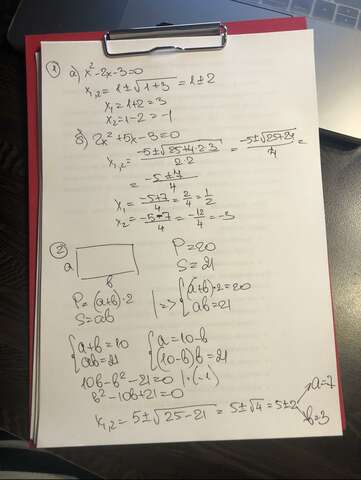 ① а) x² - 2x - 3 = 0
x₁,₂ = 1 ± √1+3 = 1 ± 2
x₁ = 1+2 = 3
x₂ = 1-2 = -1
б) 2x² + 5x - 3 = 0
x₁,₂ = (-5 ± √25+4·2·3)/(2·2) = (-5 ± √25+24)/4 =
= (-5 ± 7)/4
x₁ = (-5+7)/4 = 2/4 = 1/2
x₂ = (-5-7)/4 = -12/4 = -3
②
a
b
P = 20
S = 21
P = (a+b)·2
S = ab
| => { (a+b)·2 = 20
ab = 21
{ a+b = 10
ab = 21
{ a = 10-b
(10-b)b = 21
10b - b² - 21 = 0 | ·(-1)
b² - 10b + 21 = 0
x₁,₂ = 5 ± √25-21 = 5 ± √4 = 5 ± 2
a = 7
b = 3